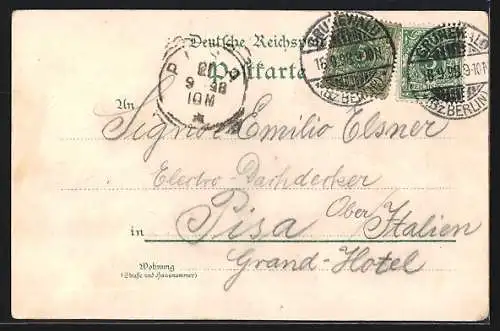 Deutsche Reichspost
Postkarte
GRUNEWALD
18.9.98. 9-10N
BZ. BERLIN
GRUNEWALD
18.9.98. 9-10N
BZ. BERLIN
PISA
20
9 98
10M
An
Signor Emilio Elsner
Electro-Dachdecker
Pisa Ober Italien
in
Grand-Hotel
Wohnung
(Straße und Hausnummer)